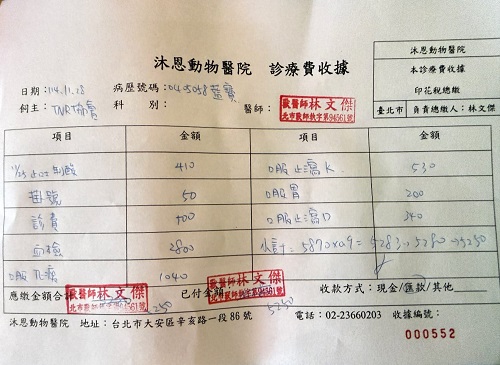 沐恩動物醫院 診療費收據
沐恩動物醫院
本診療費收據
印花稅總繳
臺北市 負責總繳人：林文傑
日期：114.11.28 病歷號碼：
飼主：TNR協會 科 別： 醫師：
獸醫師林文傑
北市獸醫執字第94561號
項目 金額 項目 金額
410 口服止瀉K 530
掛號 50 口服胃 200
診費 400 口服止瀉D 340
血檢 2800 小計=5870×0.9=5283→5280→5250
口服 1040
應繳金額合計 已付金額 收款方式：現金/匯款/其他
獸醫師林文傑
獸醫師林文傑
5250
沐恩動物醫院 地址：台北市大安區辛亥路一段86號 電話：02-23660203 收據編號：
000552